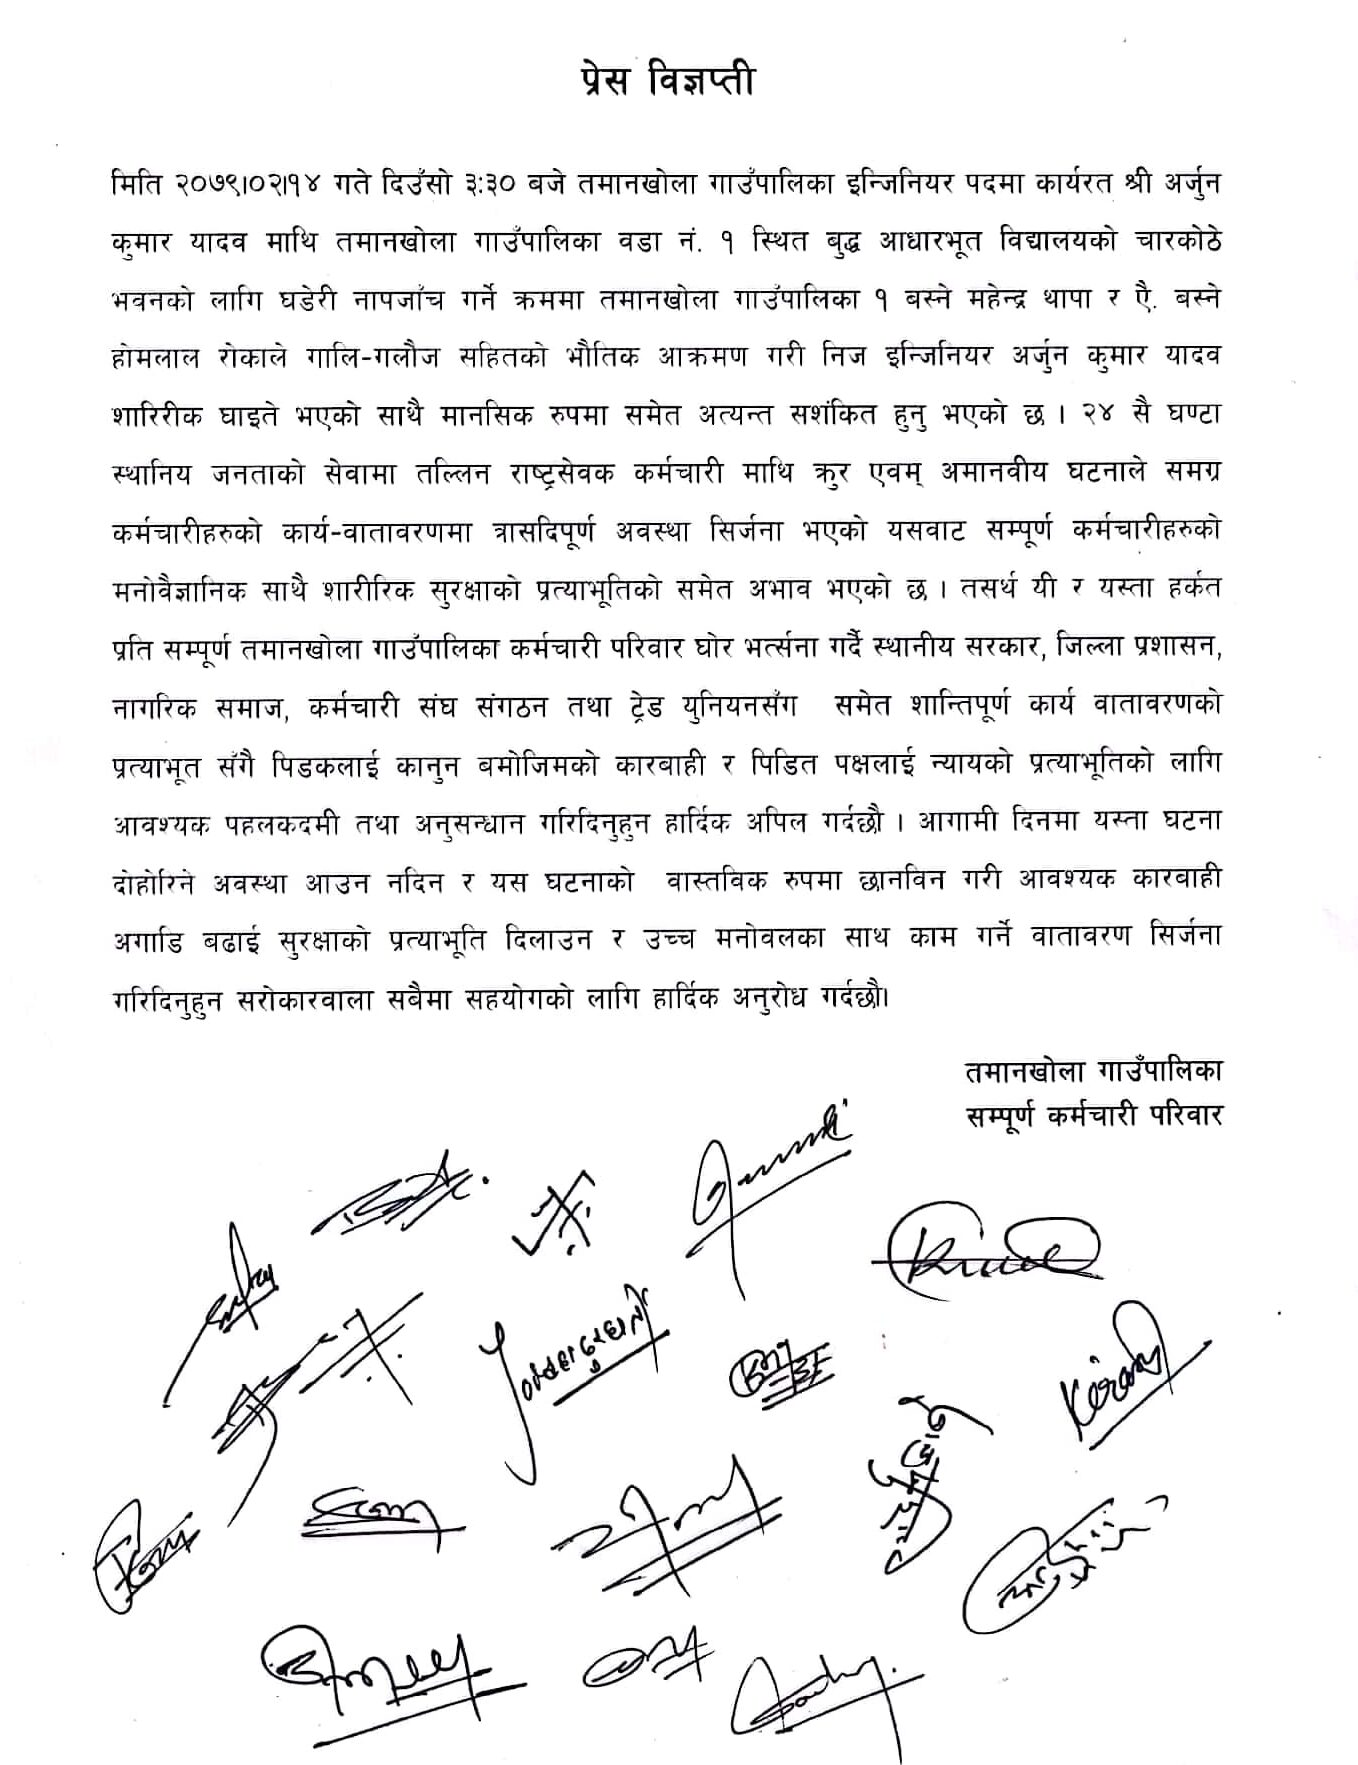 प्रेस विज्ञप्ती
मिति २०७९।०२।१४ गते दिउँसो ३:३० बजे तमानखोला गाउँपालिका इन्जिनियर पदमा कार्यरत श्री अर्जुन
कुमार यादव माथि तमानखोला गाउँपालिका वडा नं. १ स्थित बुद्ध आधारभूत विद्यालयको चारकोठे
भवनको लागि घडेरी नापजाँच गर्ने क्रममा तमानखोला गाउँपालिका १ बस्ने महेन्द्र थापा र ऐ. बस्ने
होमलाल रोकाले गालि-गलौज सहितको भौतिक आक्रमण गरी निज इन्जिनियर अर्जुन कुमार यादव
शारिरीक घाइते भएको साथै मानसिक रुपमा समेत अत्यन्त सशंकित हुनु भएको छ । २४ सै घण्टा
स्थानिय जनताको सेवामा तल्लिन राष्ट्रसेवक कर्मचारी माथि क्रुर एवम् अमानवीय घटनाले समग्र
कर्मचारीहरुको कार्य-वातावरणमा त्रासदिपूर्ण अवस्था सिर्जना भएको यसवाट सम्पूर्ण कर्मचारीहरुको
मनोवैज्ञानिक साथै शारीरिक सुरक्षाको प्रत्याभूतिको समेत अभाव भएको छ । तसर्थ यी र यस्ता हर्कत
प्रति सम्पूर्ण तमानखोला गाउँपालिका कर्मचारी परिवार घोर भर्त्सना गर्दै स्थानीय सरकार, जिल्ला प्रशासन,
नागरिक समाज, कर्मचारी संघ संगठन तथा ट्रेड युनियनसँग समेत शान्तिपूर्ण कार्य वातावरणको
प्रत्याभूत सँगै पिडकलाई कानुन बमोजिमको कारबाही र पिडित पक्षलाई न्यायको प्रत्याभूतिको लागि
आवश्यक पहलकदमी तथा अनुसन्धान गरिदिनुहुन हार्दिक अपिल गर्दछौ । आगामी दिनमा यस्ता घटना
दोहोरिने अवस्था आउन नदिन र यस घटनाको वास्तविक रुपमा छानविन गरी आवश्यक कारबाही
अगाडि बढाई सुरक्षाको प्रत्याभूति दिलाउन र उच्च मनोवलका साथ काम गर्ने वातावरण सिर्जना
गरिदिनुहुन सरोकारवाला सबैमा सहयोगको लागि हार्दिक अनुरोध गर्दछौ।
तमानखोला गाउँपालिका
सम्पूर्ण कर्मचारी परिवार